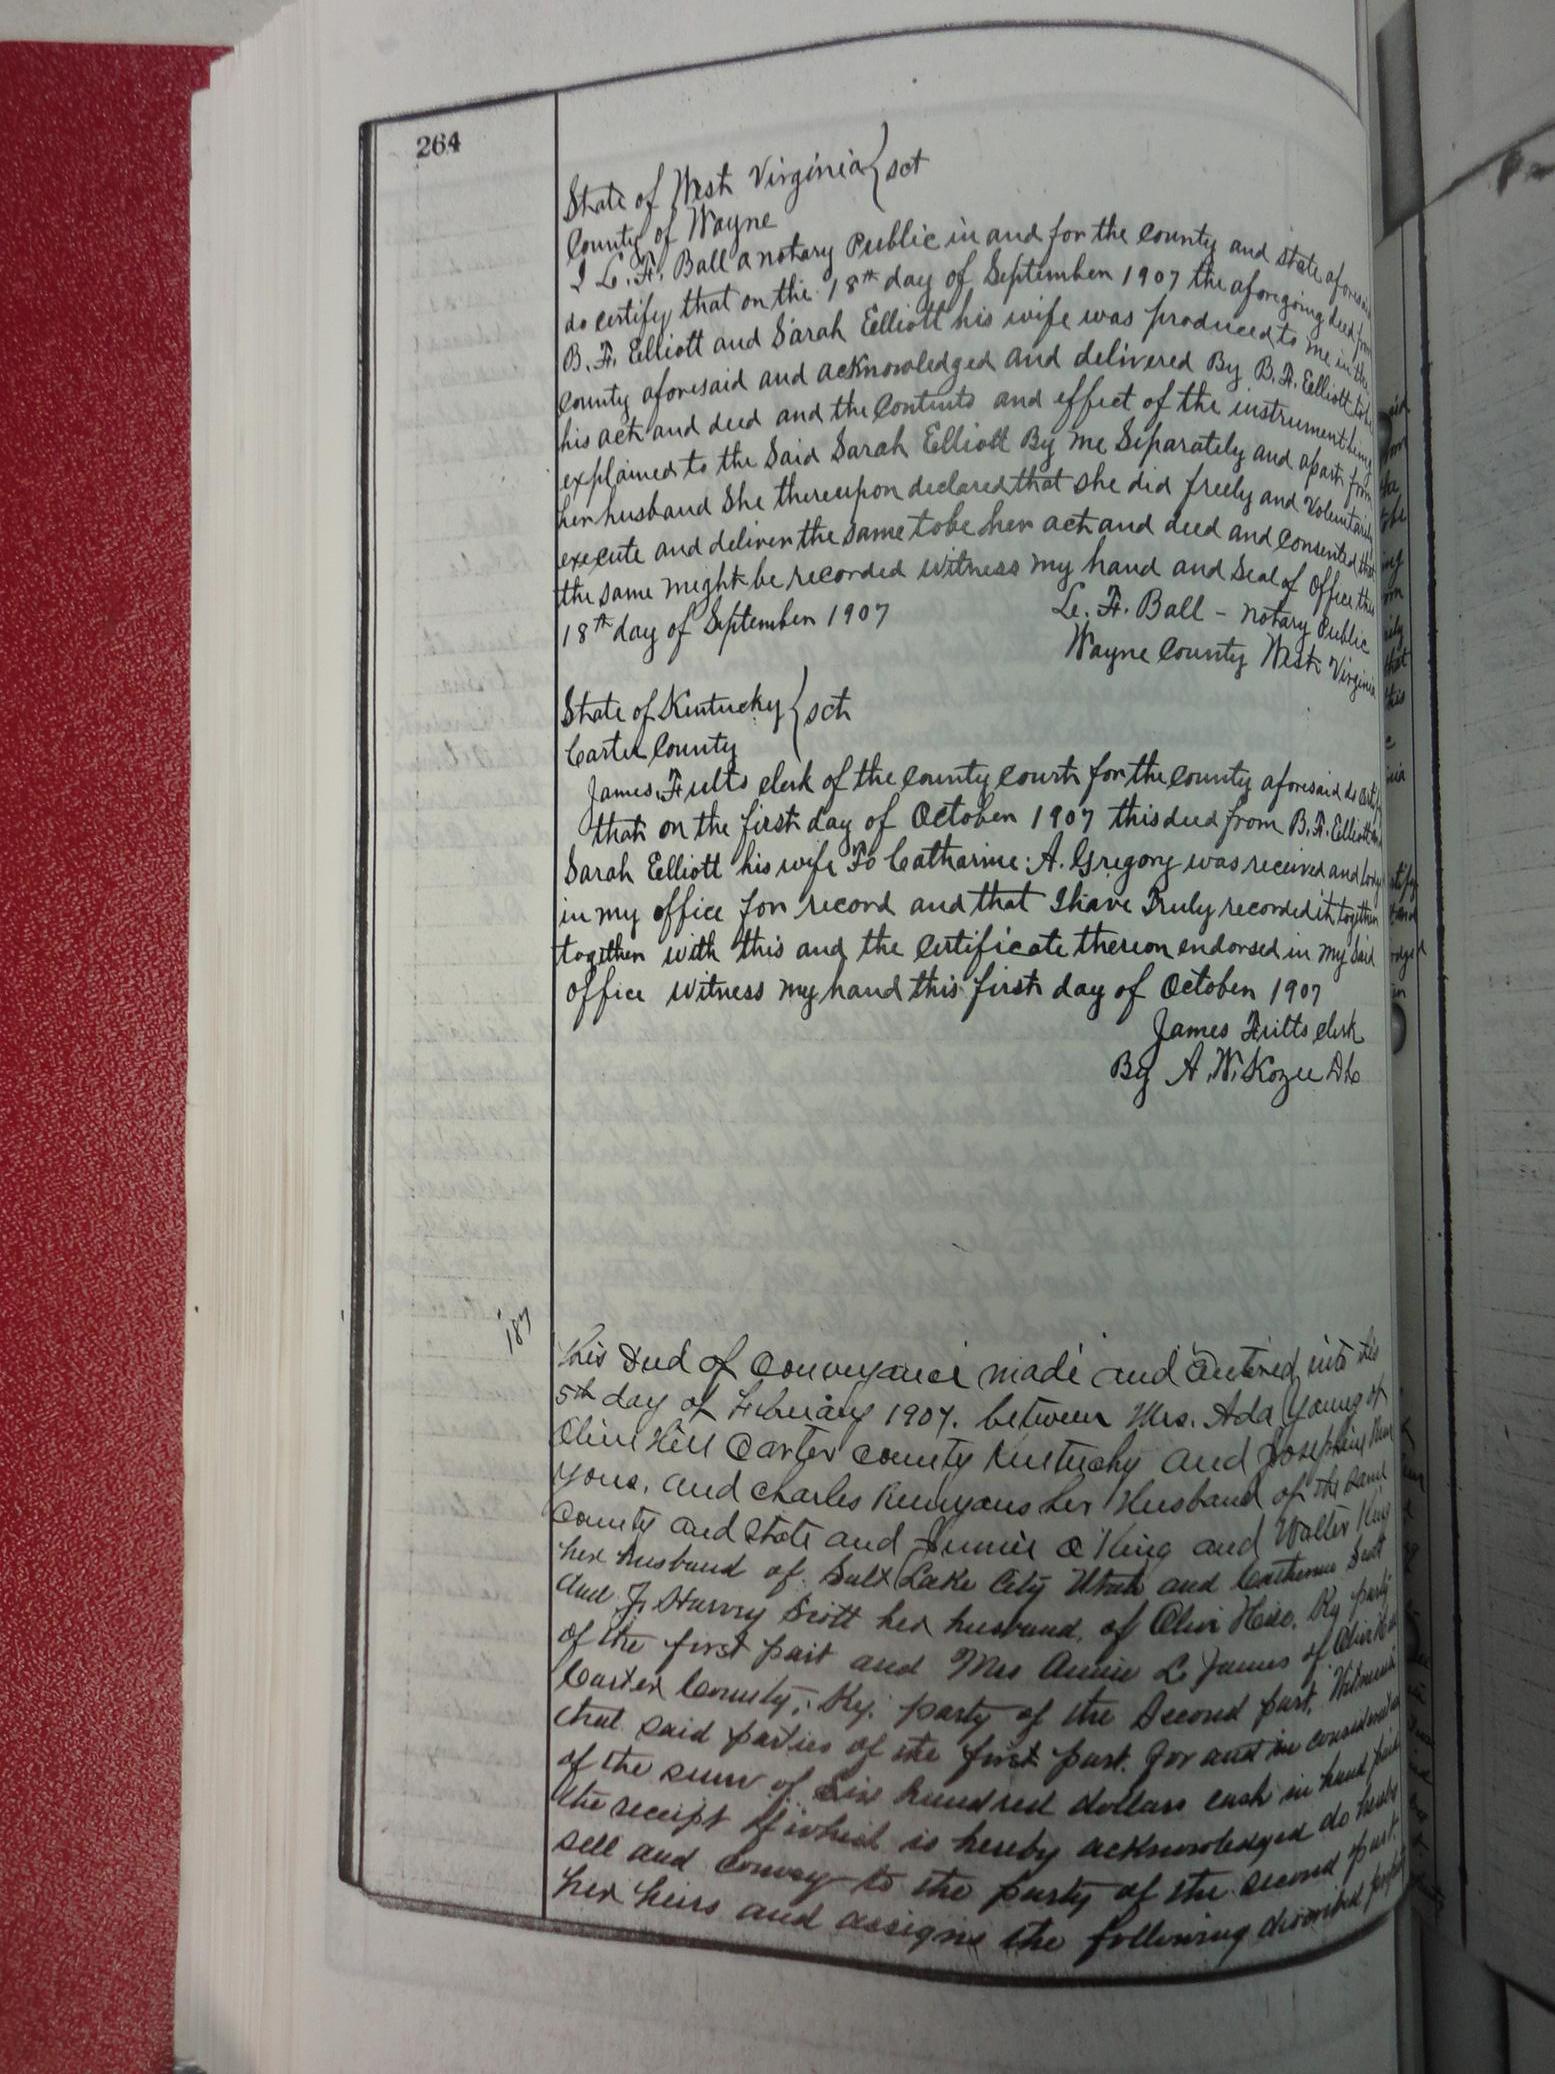 264
State of West Virginia } sct
County of Wayne
I L. F. Ball a notary Public in and for the county and state aforesaid
do certify that on the 18th day of September 1907 the aforegoing deed from
B. F. Elliott and Sarah Elliott his wife was produced to me in the
County aforesaid and acknowledged and delivered By B. F. Elliott to be
his act and deed and the Contents and effect of the instrument being
explained to the Said Sarah Elliott By me Separately and apart from
her husband She thereupon declared that she did freely and Voluntarily
execute and deliver the same to be her act and deed and consented that
the same might be recorded witness my hand and Seal of Office this
18th day of September 1907
L. F. Ball - notary Public
Wayne County West Virginia
State of Kentucky } sct
Carter County
James Fults clerk of the County Court for the County aforesaid do certify
that on the first day of October 1907 this deed from B. F. Elliott and
Sarah Elliott his wife To Catharine A. Gregory was received and lodged
in my office for record and that I have Truly recorded it together
together with this and the certificate thereon endorsed in my Said
office witness my hand this first day of October 1907
James Fults clerk
By A. W. Kozee D C
187
This Deed of Conveyance made and entered into this
5th day of February 1907. between Mrs. Ada Young of
Olive Hill Carter County Kentucky and Josephine Run
yons, and Charles Runyons her Husband of the Same
County and State and King and Walter King
her husband of Salt Lake City Utah and Catherine Scott
and J. Harvey Scott her husband, of Olive Hill. Ky party
of the first part and Mrs Annie L James of Olive Hill
Carter County, Ky. party of the Second part. Witnesseth
that said parties of the first part. for and in consideration
of the sum of Six hundred dollars cash in hand paid
the receipt of which is hereby acknowledged do hereby
sell and convey to the party of the second part.
her heirs and assigns the following described